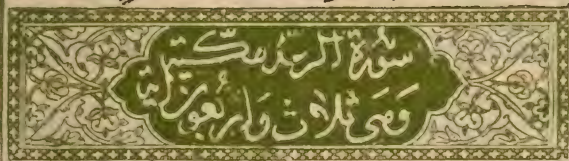 سُورَةُ الرَّعْدِ مَكِّيَّةٌ
وَهِىَ ثَلَاثٌ وَأَرْبَعُونَ آيَةً